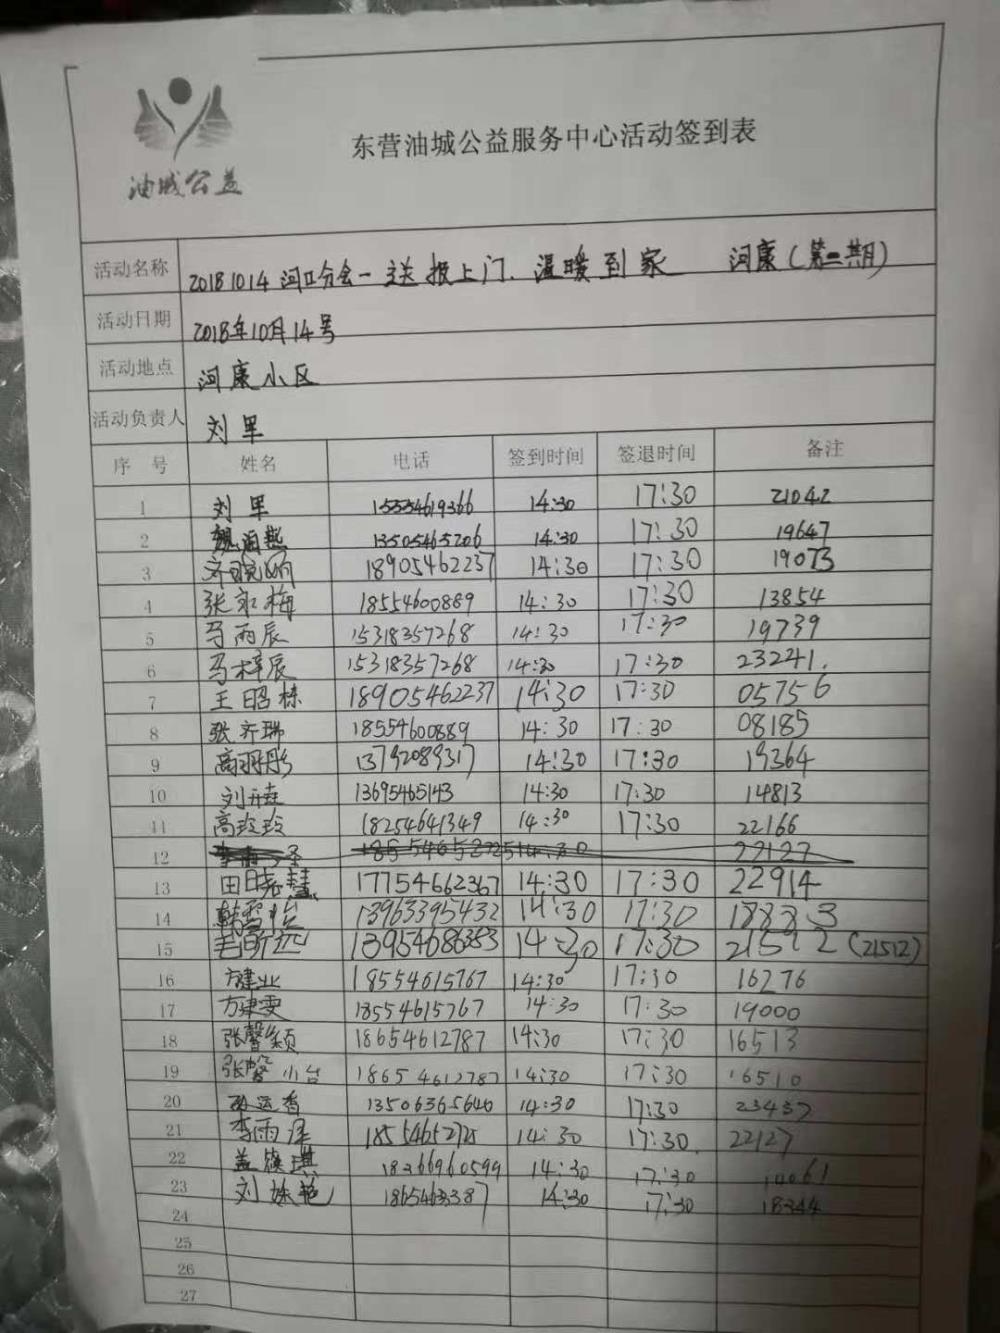 油城公益
东营油城公益服务中心活动签到表
活动名称 20181014 河口分会一送报上门、温暖到家 河康(第二期)
活动日期 2018年10月14号
活动地点 河康小区
活动负责人 刘军
序号 姓名 电话 签到时间 签退时间 备注
1 刘军 15554619366 14:30 17:30 21042
2 魏海燕 13505465206 14:30 17:30 19647
3 齐晓娟 18905462237 14:30 17:30 19073
4 张永梅 18554600889 14:30 17:30 13854
5 马雨辰 15318357268 14:30 17:30 19739
6 马梓辰 15318357268 14:30 17:30 23241.
7 王昭栋 18905462237 14:30 17:30 05756
8 张齐瑞 18554600889 14:30 17:30 08185
9 高羽彤 13792089317 14:30 17:30 19364
10 刘 13695465143 14:30 17:30 14813
11 高玲玲 18254641349 14:30 17:30 22166
12 22127
13 田晓慧 17754662367 14:30 17:30 22914
14 韩雪 13963395432 14:30 17:30 18883
15 毛昕远 13954686383 14:30 17:30 21512(21512)
16 方建业 18554615767 14:30 17:30 16276
17 方建雯 18554615767 14:30 17:30 19000
18 张馨颖 18654612787 14:30 17:30 16513
19 张馨 18654612787 14:30 17:30 16510
20 孙运香 13506365640 14:30 17:30 23437
21 李雨泽 14:30 17:30. 22127
22 盖镇琪 18266960599 14:30 17:30 14061
23 刘姝艳 14:30 17:30 18344
24
25
26
27